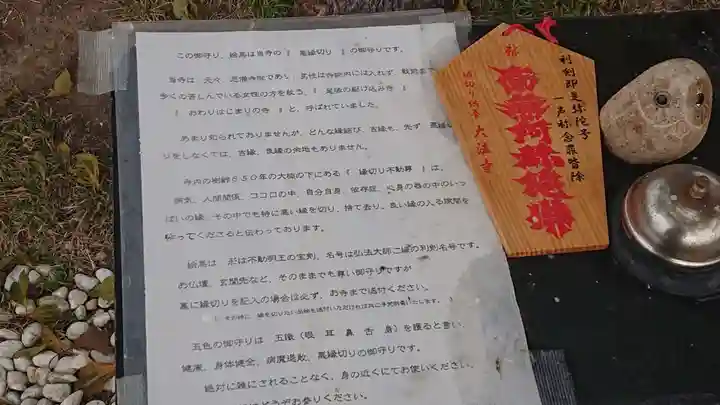 この御守り、絵馬は当寺の『 悪縁切り 』の御守りです。
当寺は、元々 尼僧寺院であり、男性は寺院内には入れず、戦前まで
多くの苦しんでいる女性の方を救う、『 尾張の駆け込み寺 』
『 おわりはじまりの寺 』と、呼ばれていました。
あまり知られておりませんが、どんな縁結び、古縁も、先ず 悪縁切
りをしなくては、吉縁、良縁の余地もありません。
寺内の樹齢650年の大楠の下にある『 縁切り不動尊 』は、
病気、人間関係、ココロの中、自分自身、依存症、心身の器の中のいっ
ぱいの縁、その中でも特に悪い縁を切り、捨て去り、良い縁の入る隙間を
作ってくださると伝わっております。
絵馬は 形は不動明王の宝剣、名号は弘法大師ご縁の利剣名号です。
お仏壇、玄関先など、そのままでも尊い御守りですが
裏に縁切りを記入の場合は必ず、お寺まで送付ください。
五色の御守りは 五識(眼 耳 鼻 舌 身)を護ると言い、
健康、身体健全、病魔退散、悪縁切りの御守りです。
絶対に雑にされることなく、身の近くにてお使いください。
お参りください。
利剣即是弥陀号
一声称念罪皆除
縁切り
大法寺